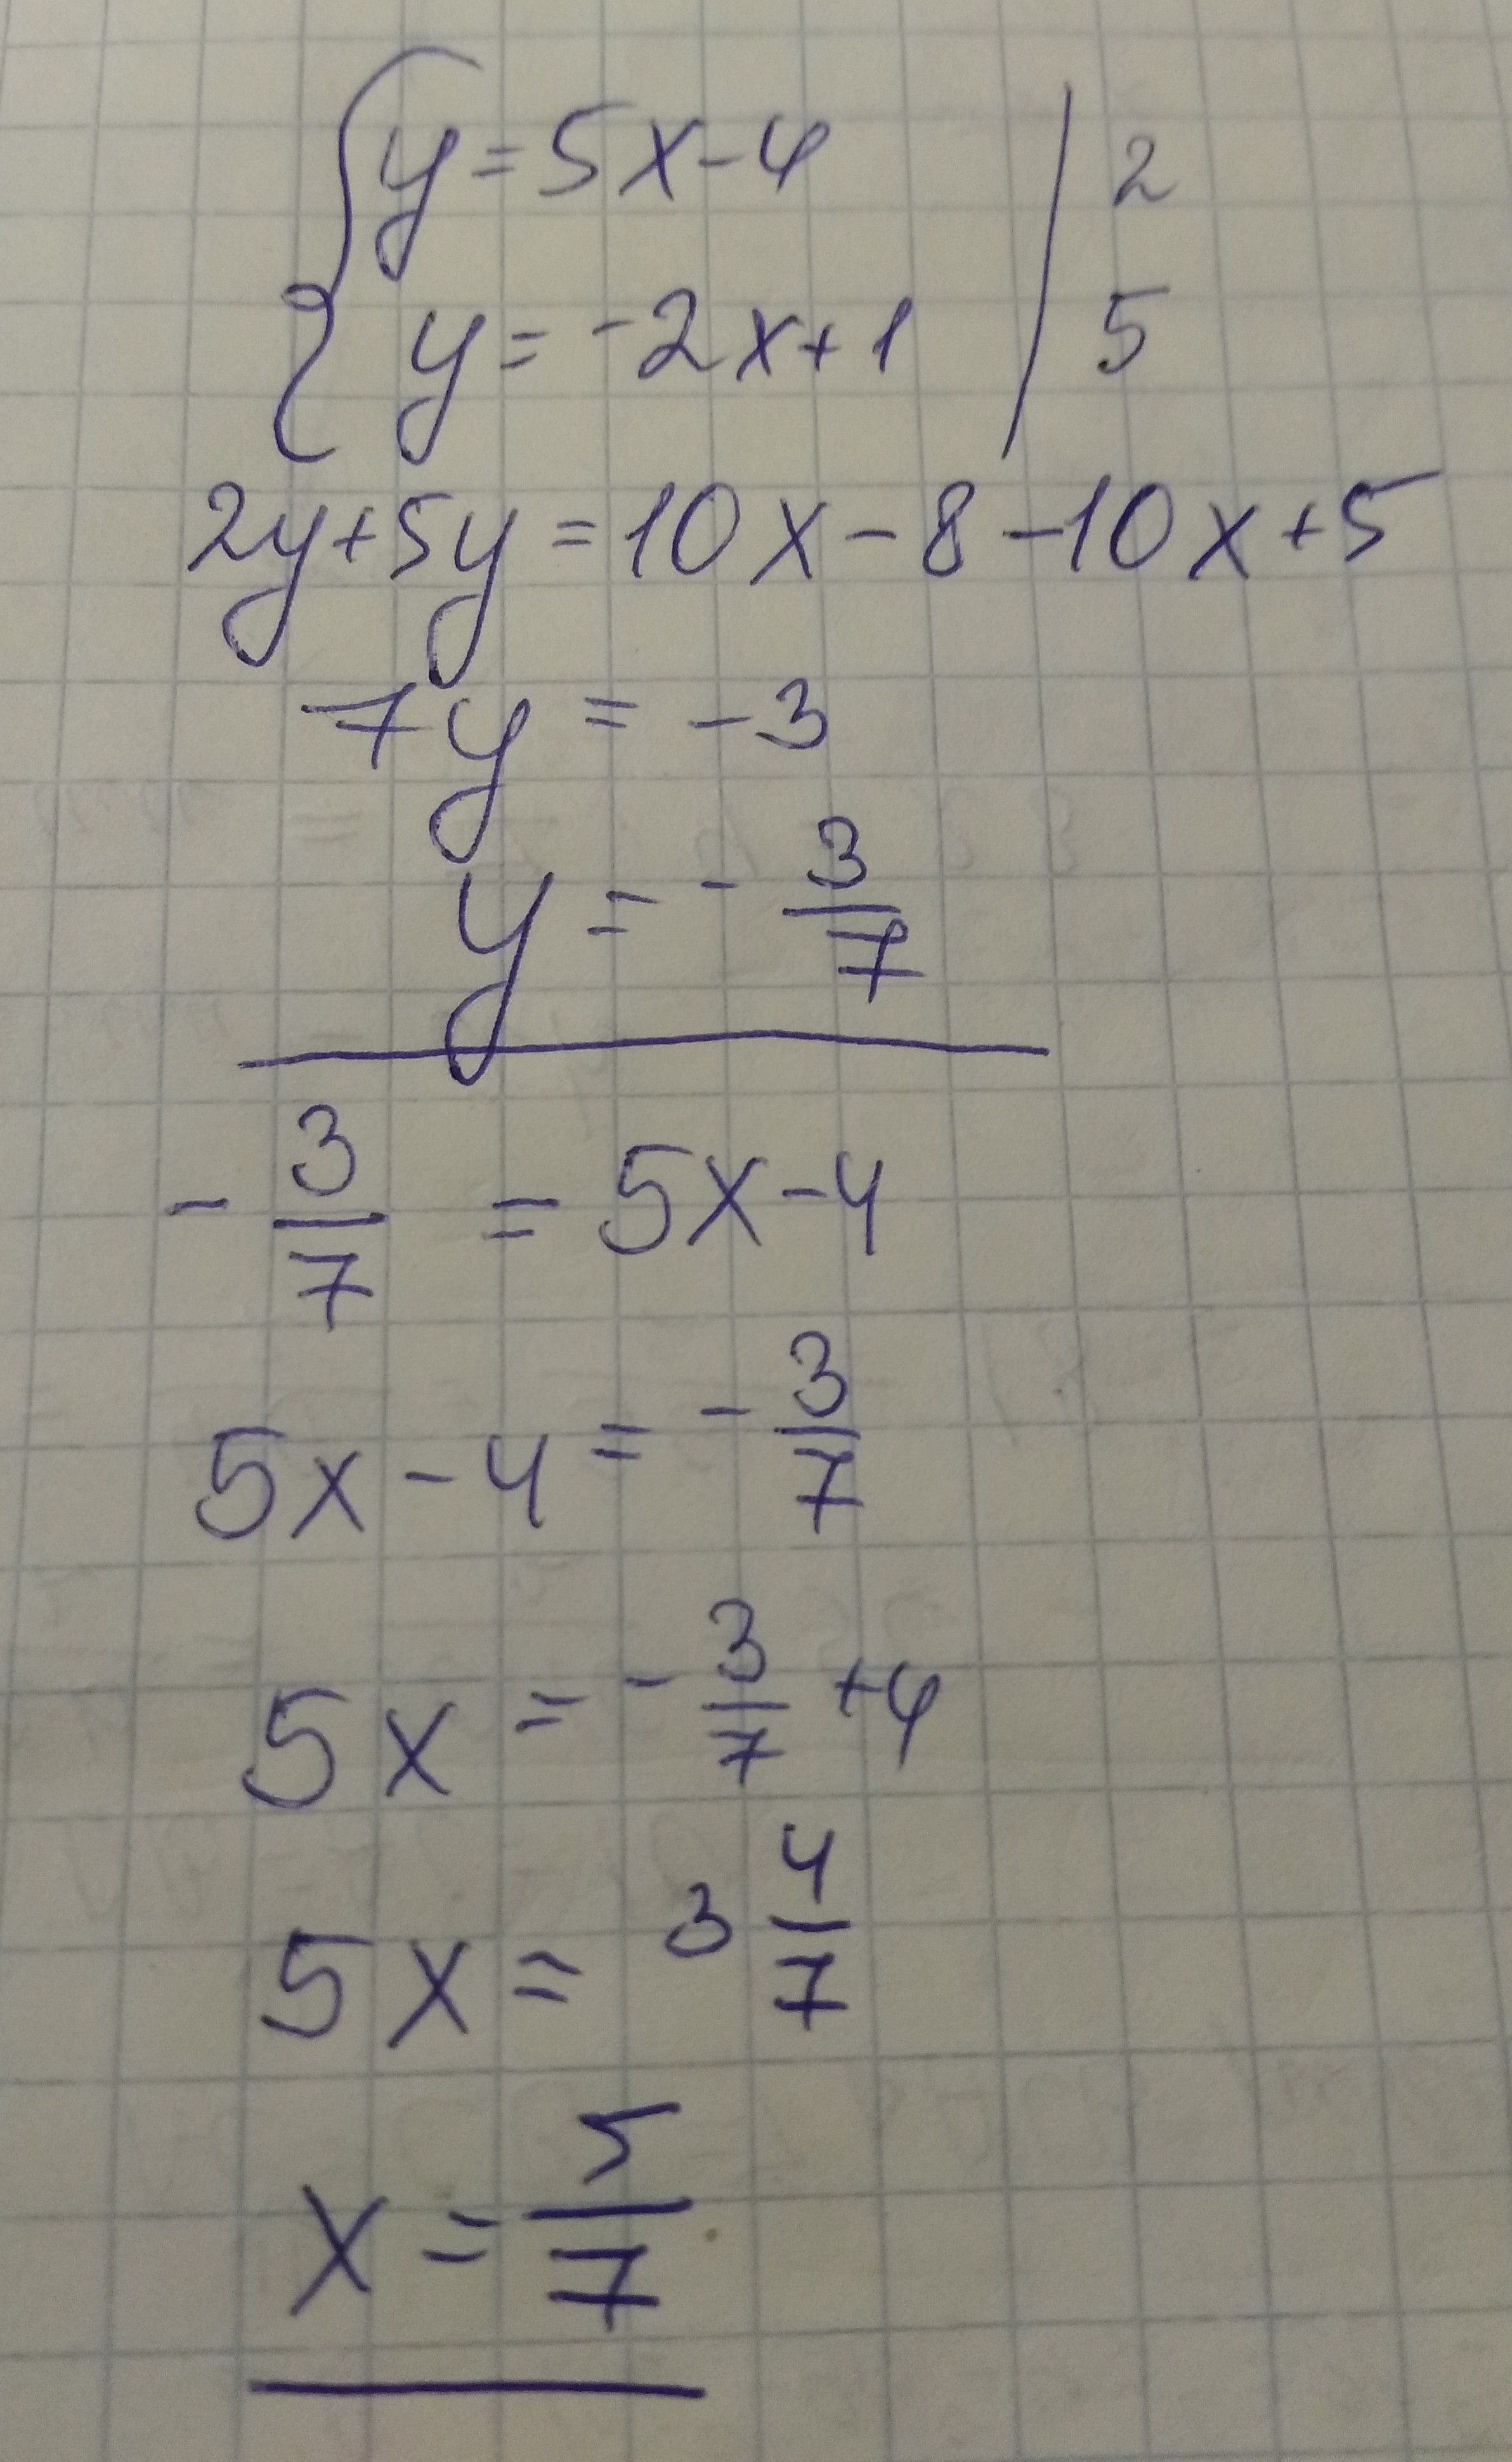 { y = 5x - 4 | 2
y = -2x + 1 | 5
2y + 5y = 10x - 8 - 10x + 5
7y = -3
y = - 3/7
- 3/7 = 5x - 4
5x - 4 = - 3/7
5x = - 3/7 + 4
5x = 3 4/7
x = 5/7